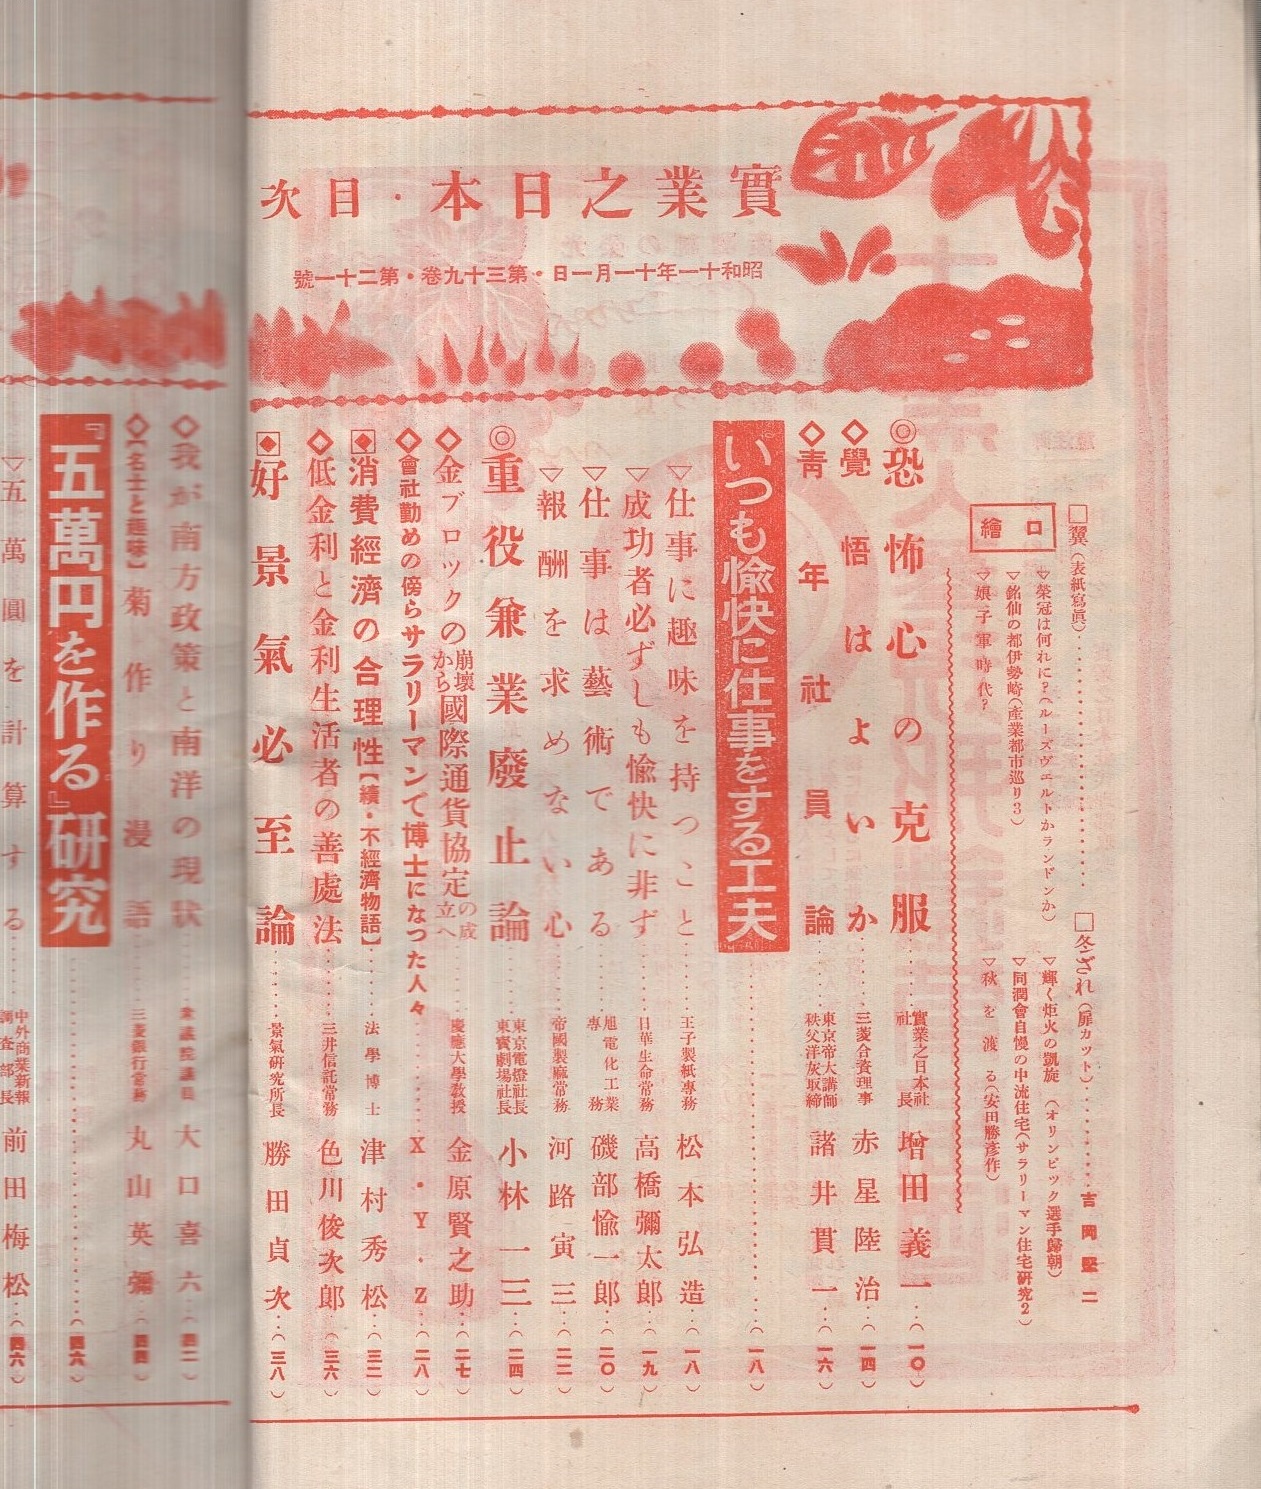 實業之日本・目次
昭和十一年十一月一日・第三十九卷・第二十一號
□翼（表紙寫眞）
□冬ざれ（扉カット）吉岡堅二
口繪
▽榮冠は何れに？（ルーズヴエルトかランドンか）
▽輝く炬火の凱旋（オリンピック選手歸朝）
▽銘仙の都伊勢崎（產業都市巡り3）
▽同潤會自慢の中流住宅（サラリーマン住宅研究2）
▽娘子軍時代？
▽秋を渡る（安田勝彦作）
◎恐怖心の克服……實業之日本社社長 增田義一…（一〇）
◇覺悟はよいか……三菱合資理事 赤星陸治…（一四）
◇靑年社員論……東京帝大講師 秩父洋灰取締 諸井貫一…（一六）
いつも愉快に仕事をする工夫……（一八）
▽仕事に趣味を持つこと……王子製紙專務 松本弘造…（一八）
▽成功者必ずしも愉快に非ず……日華生命常務 高橋彌太郎…（一九）
▽仕事は藝術である……旭電化工業專務 磯部愉一郎…（二〇）
▽報酬を求めない心……帝國製麻常務 河路寅三…（二二）
◎重役兼業廢止論……東京電燈社長 東寶劇場社長 小林一三…（二四）
◇金ブロックの崩壞から國際通貨協定の成立へ……慶應大學敎授 金原賢之助…（二七）
◇會社勤めの傍らサラリーマンで博士になつた人々……X・Y・Z…（二八）
◆消費經濟の合理性【續・不經濟物語】……法學博士 津村秀松…（三二）
◇低金利と金利生活者の善處法……三井信託常務 色川俊次郎…（三六）
◆好景氣必至論……景氣研究所長 勝田貞次…（三八）
◇我が南方政策と南洋の現狀……衆議院議員 大口喜六…（四二）
◇【名士と趣味】菊作り漫語……三菱銀行常務 丸山英彌…（四四）
『五萬円を作る』研究……（四六）
▽五萬圓を計算する……中外商業新報調査部長 前田梅松…（四六）